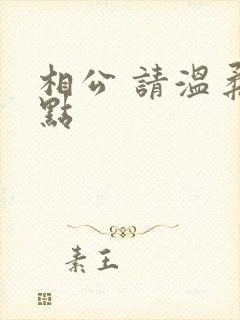 相公 請溫柔
點
素王